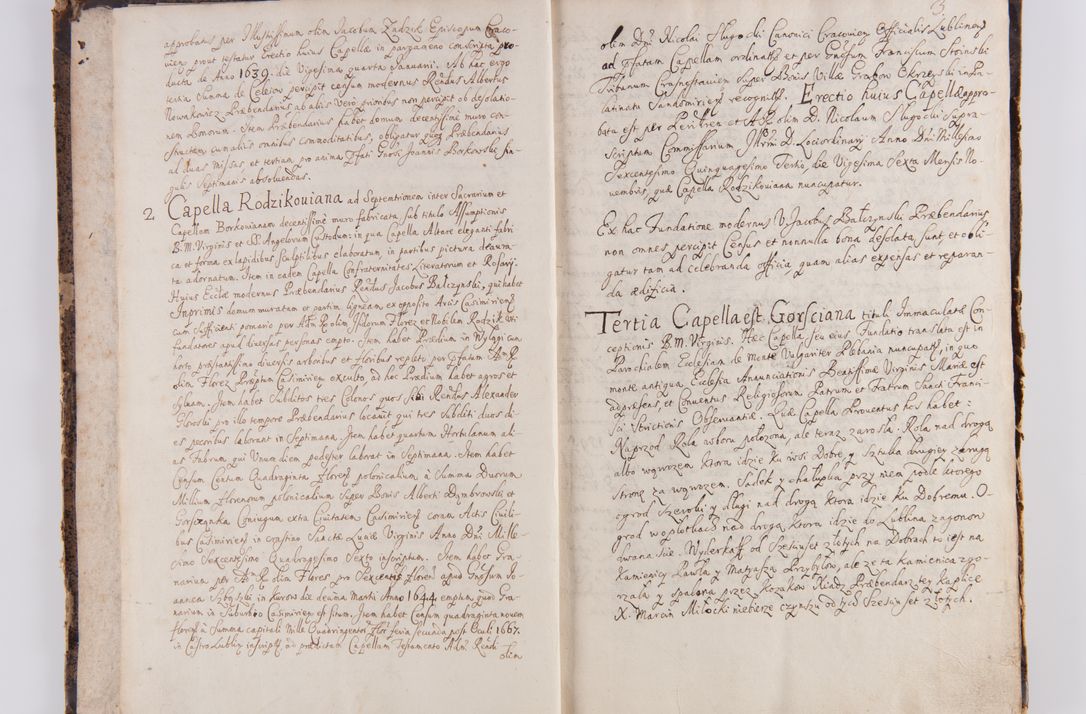 approbatus per Illustrissimum olim Jacobum Zadzik Episcopum Craco-
vien prout testatur Erectio huius Capellæ in pargameno conscripta pro-
ducta de Anno 1639. die Vigesima quarta Januarii. Ab hac ergo
tertia Summa de Celeiow percipit censum modernus Rendus Albertus
Nowakowicz Præbendarius ab aliis vero prioribus non percipit ob desolatio-
nem Bonorum. Item Præbendarius habet domum decentissime muro con-
structam cum aliis omnibus commoditatibus, obligatur quoq Præbendarius
ad duas missas et tertiam pro anima Joannis Borkowski sin-
gulis Septimanis absolvendas.
2. Capella Rodzikouiana ad Septentrionem inter Sacrarium et
Capellam Borkowianam decentissime muro fabricata, sub titulo Assumptionis
B.M. Virginis et SS. Angelorum Custodum: in qua Capella Altare eleganti fabri
ca et forma ex lapidibus Sculptilibus elaboratum in partibus pictura deaura-
ta adornatum. Item in eadem Capella Confraternitates Literatorum et Rosarii.
Huius Eccliæ modernus Præbendarius Rendus Jacobus Balczynski, qui habet
Inprimis domum muratam et partim ligneam ex opposito Arcis Casimirien
cum sufficienti pomario per Adm R. olim Isidorum Florez et Nobilem Rodzik
fundatores apud diuersas personas empto. Item habet Prædium in Wylągi cum
horto præstantissimo diuersis arboribus et floribus repleto per Adm R
olim Florez Præptum Casimirien exculto, ad hoc Prædium habet agros et
Syluam. Item habet Subditos tres Colonos quos Rendus Alexander
Gloroski pro illo tempore Præbendarius locauit qui tres Subditi duos di-
es pecoribus laborant in Septimana. Item habet quartum Hortulanum ali-
as Fabrum qui Vnum diem pedester laborat in Septimana. Item habet
Censum Centum Quadraginta floren polonicalium à Summa Duorum
Millium florenorum polonicalium Super Bonis Alberti Dymbrowski et
Coniugum extra Ciuitatem Casimirien coram Actis Ciuili-
bus Casimirien in crastino Sanctæ Luciæ Virginis Anno Dni Mille-
simo Sexcentesimo Quadragesimo Sexto inscriptum. Item habet Gra-
narium per Ad R olim Florez pro Sexcentis floren apud Gnosum Jo-
annem die decima Martii Anno 1644 emptum quod Gra-
narium in Suburbio Casimirien est situm. Item habet Censum quadraginta nouem
floren à Summa capitali Mille Quadringentor flor feria secunda post Oculi 1667.
in Castro Lublin inscript, ad prædictam Capellam Testamento Adm. Rendi
olim
3
olim Dni Nicolai Slugocki Canonici Cracovien Officialis Lublinen
ad Capellam ordinatis et per Gnosum Franciscum Stoinski
Tribunum Crasnostauien Super Bonis Villæ Grabow Okrzynski in Pa-
latinatu Sandomirien recognitis. Erectio huius Capellæ appro-
bata est per Perillrem et Adm R olim D. Nicolaum Slugocki Supra-
scriptum Commissarium Illrmi D. Loci ordinarii Anno Dni Millesimo
Sexcentesimo Quinquagesimo Tertio, die Vigesima Sexta Mensis No-
uembris, quæ Capella Rodzikouiana nuncupatur.
Ex hac Fundatione modernus V. Jacobus Balczynski Præbendarius
non omnes percipit Census et nonnulla bona desolata sunt, et obli-
gatur tam ad celebranda officia, quam alias expensas et reparan-
da ædificia.
Tertia Capella est Gorsciana tituli Immaculatæ Con-
ceptionis B.M. Virginis. Hæc Capella seu eius Fundatio translata est in
Parochialem Ecclesiam de Monte Vulgariter Plebania nuncupatur, in quo
monte antiqua Ecclesia Anuunciationis Beatissimæ Virginis Mariæ est
ad præsens, et Conuentus Religiosorum Patrum et Fratrum Sancti Franci-
sci Strictioris Obseruantiæ. Quæ Capella Prouentus hos habet:
Naprzod Rola w boru położona, ale teraz zarosła. Rola nad drogą
albo wąwozem ktora idzie ku wsi Dobre, y Sztuka drugiey zdrugą
stroną za wąwozem. Sadek y chałupka przy niem podle ktorego
ogrod Szeroki y długi nad drogą ktora idzie ku Dobremu. O-
grod w opłotkach nad drogą ktora idzie do Lublina zagonow
dwanaście. Wyderkaff od Sześciuset złotych na Dobrach to iest na
Kamienicy Pawła y Matyasza Przybyłow, ale ze ta Kamienica zgo-
rzała y spadła przez Kozakow Xiądz Præbendarz tey Kaplice
X. Marcin Miłocki niebierze czynszu od tych Szesciu set złotych.